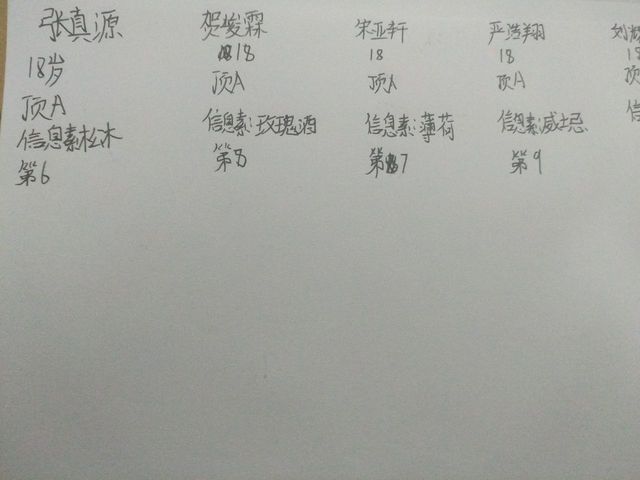 张真源
18岁
顶A
信息素松木
第6
贺峻霖
18
顶A
信息素:玫瑰酒
第8
宋亚轩
18
顶A
信息素:薄荷
第7
严浩翔
18
顶A
信息素:威士忌
第9
刘
18
顶
信